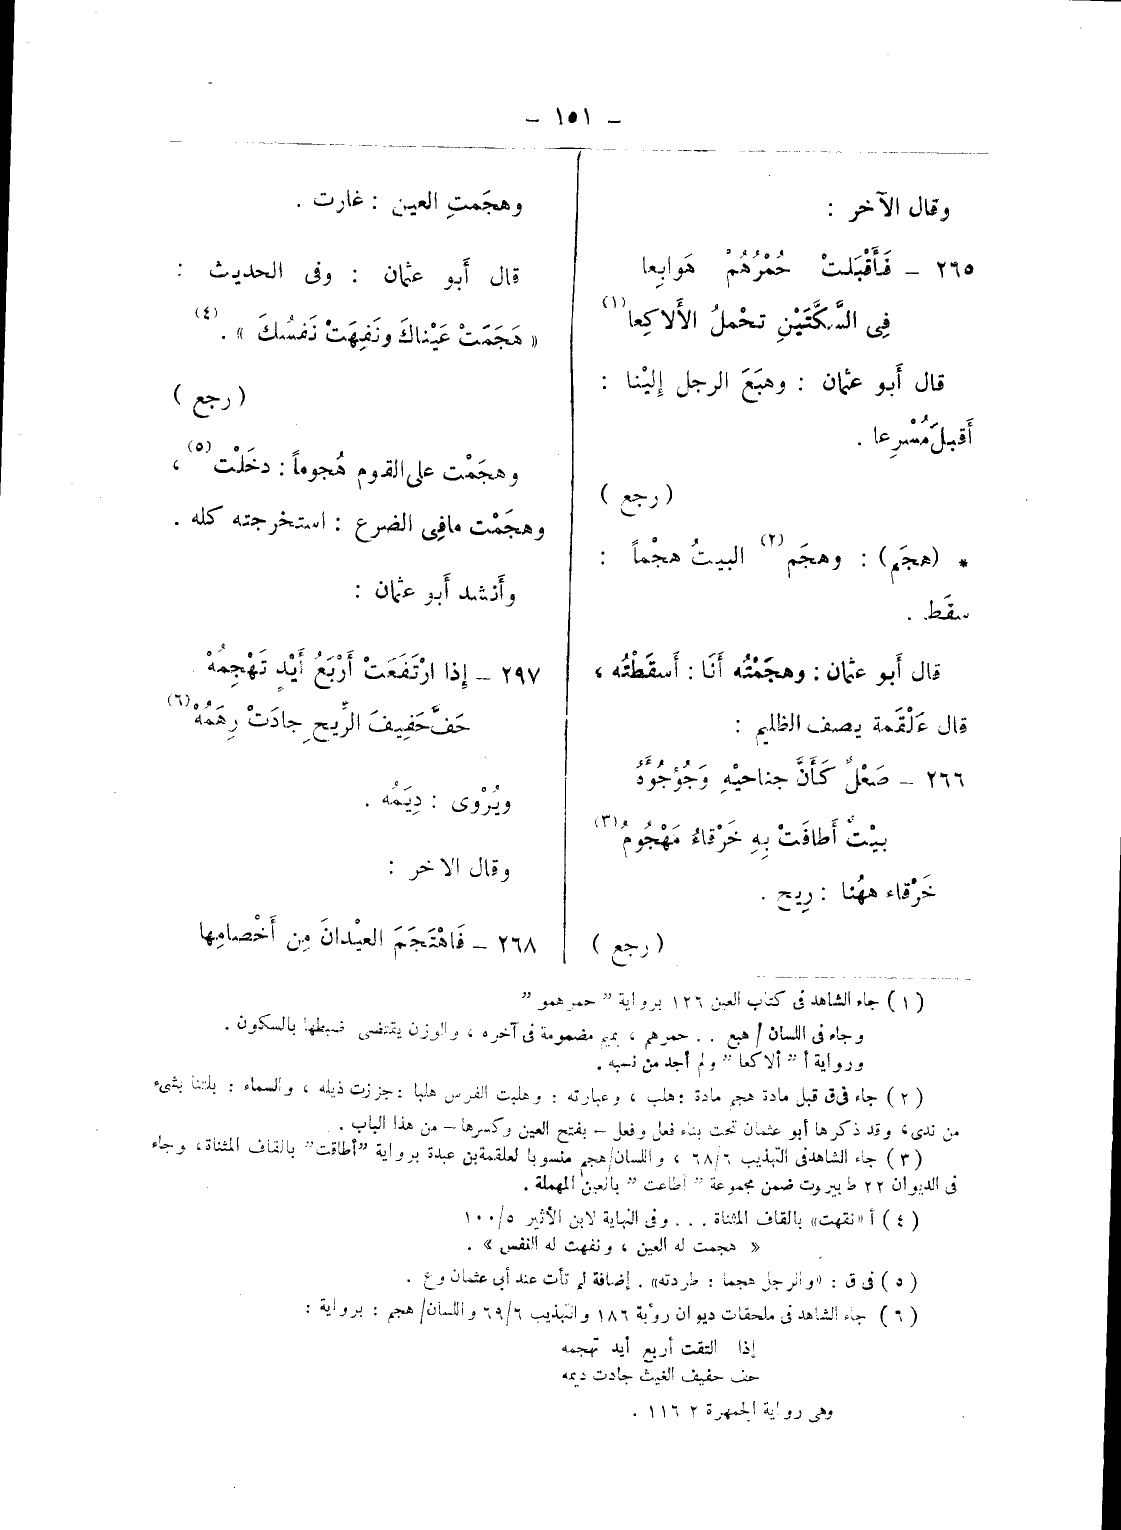 – ١٥١ –
وقال الآخر :
٢٦٥ – فَأَقْبَلتْ حُمْرُهُمْ هَوابِعا
فِى السَّكَّتَيْنِ تحْملُ الأَلاكِعا (١)
قال أَبو عثمان : وهبَعَ الرجل إِليْنا :
أَقبلَ مُسْرِعا .
( رجع )
* (هجَم) : وهجَم (٢) البيتُ هجْماً :
سقَط .
قال أَبو عثمان : وهجَمْتُه أَنَا : أَسقَطْتُه ،
قال عَلْقَمة يصف الظليم :
٢٦٦ – صَعْلٌ كَأَنَّ جناحيْهِ وَجُؤْجُؤَهُ
بيْتٌ أَطافَتْ بِهِ خَرْقاءُ مَهْجُومُ (٣)
خَرْقاء ههُنا : رِيح .
( رجع )
وهجَمتِ العين : غارت .
قال أَبو عثمان : وفى الحديث :
« هَجَمَتْ عَيْناكَ ونَفِهَتْ نَفسُكَ » . (٤)
( رجع )
وهجَمْت على القوم هُجوماً : دخَلْت (٥) ،
وهجَمْت مافِى الضرع : استخرجته كله .
وأَنشد أَبو عثمان :
٢٩٧ – إِذا ارْتَفَعَتْ أَرْبَعُ أَيْدٍ تَهْجِمُهْ
حَفَّ حَفِيفَ الرِّيحِ جادَتْ رِهَمُهْ (٦)
ويُرْوى : دِيَمُه .
وقال الاخر :
٢٦٨ – فَاهْتَجَمَ العيْدانَ مِن أَخْصامِها
( ١ ) جاء الشاهد فى كتاب العين ١٢٦ برواية ” حمرهمو “
وجاء فى اللسان / هبع .. حمرهم ، بميم مضمومة فى آخره ، والوزن يقتضى ضبطها بالسكون .
ورواية أ ” ألاكعا “ ولم أجد من نسبه .
( ٢ ) جاء فى ق قبل مادة هجم مادة : هلب ، وعبارته : وهلبت الفرس هلبا : جززت ذيله ، والسماء : بلتنا بشىء
من ندى، وقد ذكرها أبو عثمان تحت بناء فعل وفعل – بفتح العين وكسرها – من هذا الباب .
( ٣ ) جاء الشاهد فى التهذيب ٦٨/٦ ، واللسان/هجم منسوبا لعلقمة بن عبدة برواية ”أطاقت“ بالقاف المثناة، وجاء
فى الديوان ٢٢ ط بيروت ضمن مجموعة ” أطاعت “ بالعين المهملة .
( ٤ ) أ «نقهت» بالقاف المثناة ... وفى النهاية لابن الأثير ١٠٠/٥
« هجمت له العين ، ونفهت له النفس » .
( ٥ ) فى ق : «والرجل هجما : طردته» . إضافة لم تأت عند أبى عثمان وع .
( ٦ ) جاء الشاهد فى ملحقات ديوان رؤبة ١٨٦ والتهذيب ٦٩/٦ واللسان/ هجم : برواية :
إذا التقت أربع أيد تهجمه
حف حفيف الغيث جادت ديمه
وهى رواية الجمهرة ٢ ١١٦ .